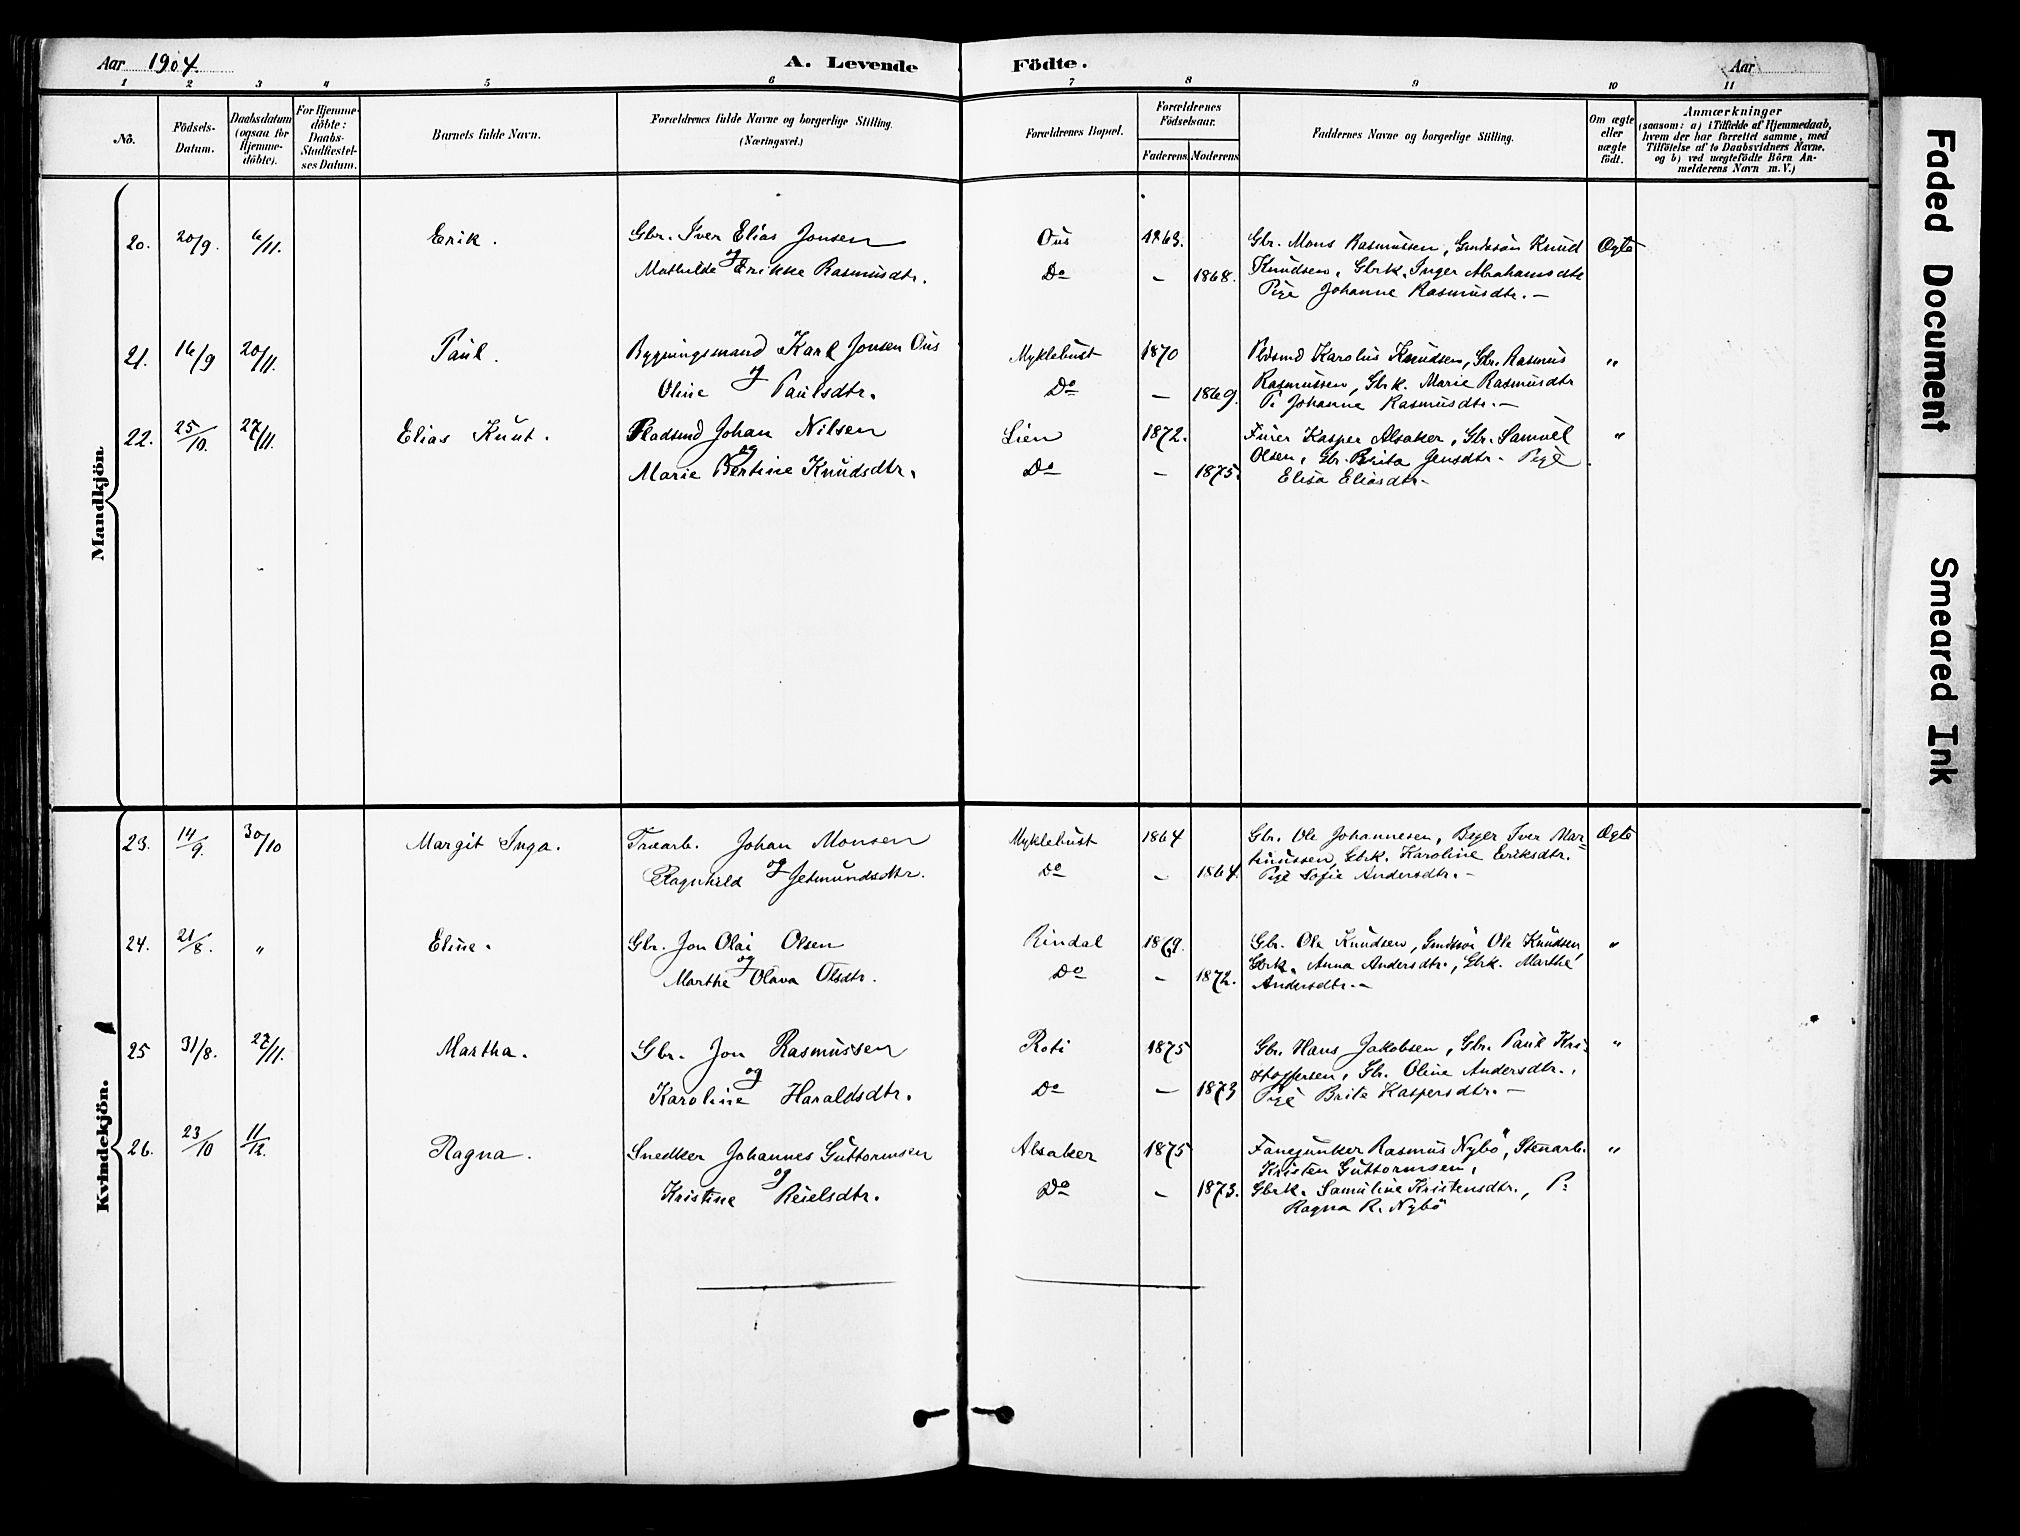 Aar 1904. A. Levende Födte. Aar
1 2 3 4 5 6 7 8 9 10 11
No. Födsels-Datum. Daabsdatum (ogsaa for Hjemmedöbte). For Hjemmedöbte: Daabs-Stadfæstelses Datum. Barnets fulde Navn. Forældrenes fulde Navne og borgerlige Stilling. (Næringsvei.) Forældrenes Bopæl. Forældrenes Födselsaar. Faderens. Moderens. Faddernes Navne og borgerlige Stilling. Om ægte eller uægte födt. Anmærkninger (saasom: a) i Tilfælde af Hjemmedaab, hvem der har forrettet samme, med Tilföielse af to Daabsvidners Navne. og b) ved uægtefödte Börn Anmelderens Navn m.V.)
Mandkjön.
20. 20/9. 6/11. Erik. Gbr. Iver Elias Jonsen Ous 1863. Gbr. Mons Rasmussen, Gmdssön Knud Ægte
og
Mathilde Erikke Rasmusdtr. Do — 1868. Knudsen, Gbrk. Inger Abrahamsdtr
Pige Johanne Rasmusdtr. —
21. 16/9 20/11. Paul. Bygningsmand Karl Jonsen Ous Myklebust 1870 Pldsmd Karolus Knudsen, Gbr. Rasmus "
og
Oline Paulsdtr. Do — 1869. Rasmussen, Gbrk. Marie Rasmusdtr
P. Johanne Rasmusdtr. —
22. 25/10. 27/11. Elias Knut. Pladsmd Johan Nilsen Lien 1872. Furer Kasper Alsaker, Gbr. Samuel "
og
Marie Bertine Knudsdtr. Do — 1875. Olsen, Gbr. Brita Jensdtr. Pige
Elisa Eliasdtr —
Kvindekjön.
23. 14/9. 30/10 Margit Inga. Træarb. Johan Monsen Myklebust 1864 Gbr. Ole Johannesen, Bryer Iver Mar- Ægte
og
Ragnhild Jetmundsdtr. Do — 1864. tinussen, Gbrk. Karoline Eriksdtr.
Pige Sofie Andersdtr. —
24. 21/8. " Eline. Gbr. Jon Olai Olsen Rindal 1869. Gbr. Ole Knudsen, Gmdssön Ole Knudsen "
og
Marthe Olava Olsdtr. Do — 1872. Gbrk. Anna Andersdtr., Gbrk. Marthe
Andersdtr. —
25 31/8. 27/11. Martha. Gbr. Jon Rasmussen Roti 1875 Gbr. Hans Jakobsen, Gbr. Paul Kri- "
og
Karoline Haraldsdtr. Do — 1873 stoffersen, Gbr. Oline Andersdtr.,
Pige Brite Kaspersdtr. —
26. 23/10 11/12. Ragna. Snedker Johannes Guttormsen Alsaker 1875 Fanejunker Rasmus Nybö, Stenarb. "
og
Kristen Guttormsen,
Kristine Reielsdtr. Do — 1873. Gbrk. Samuline Kristensdtr., P.
Ragna R. Nybö
Faded Document
Smeared Ink